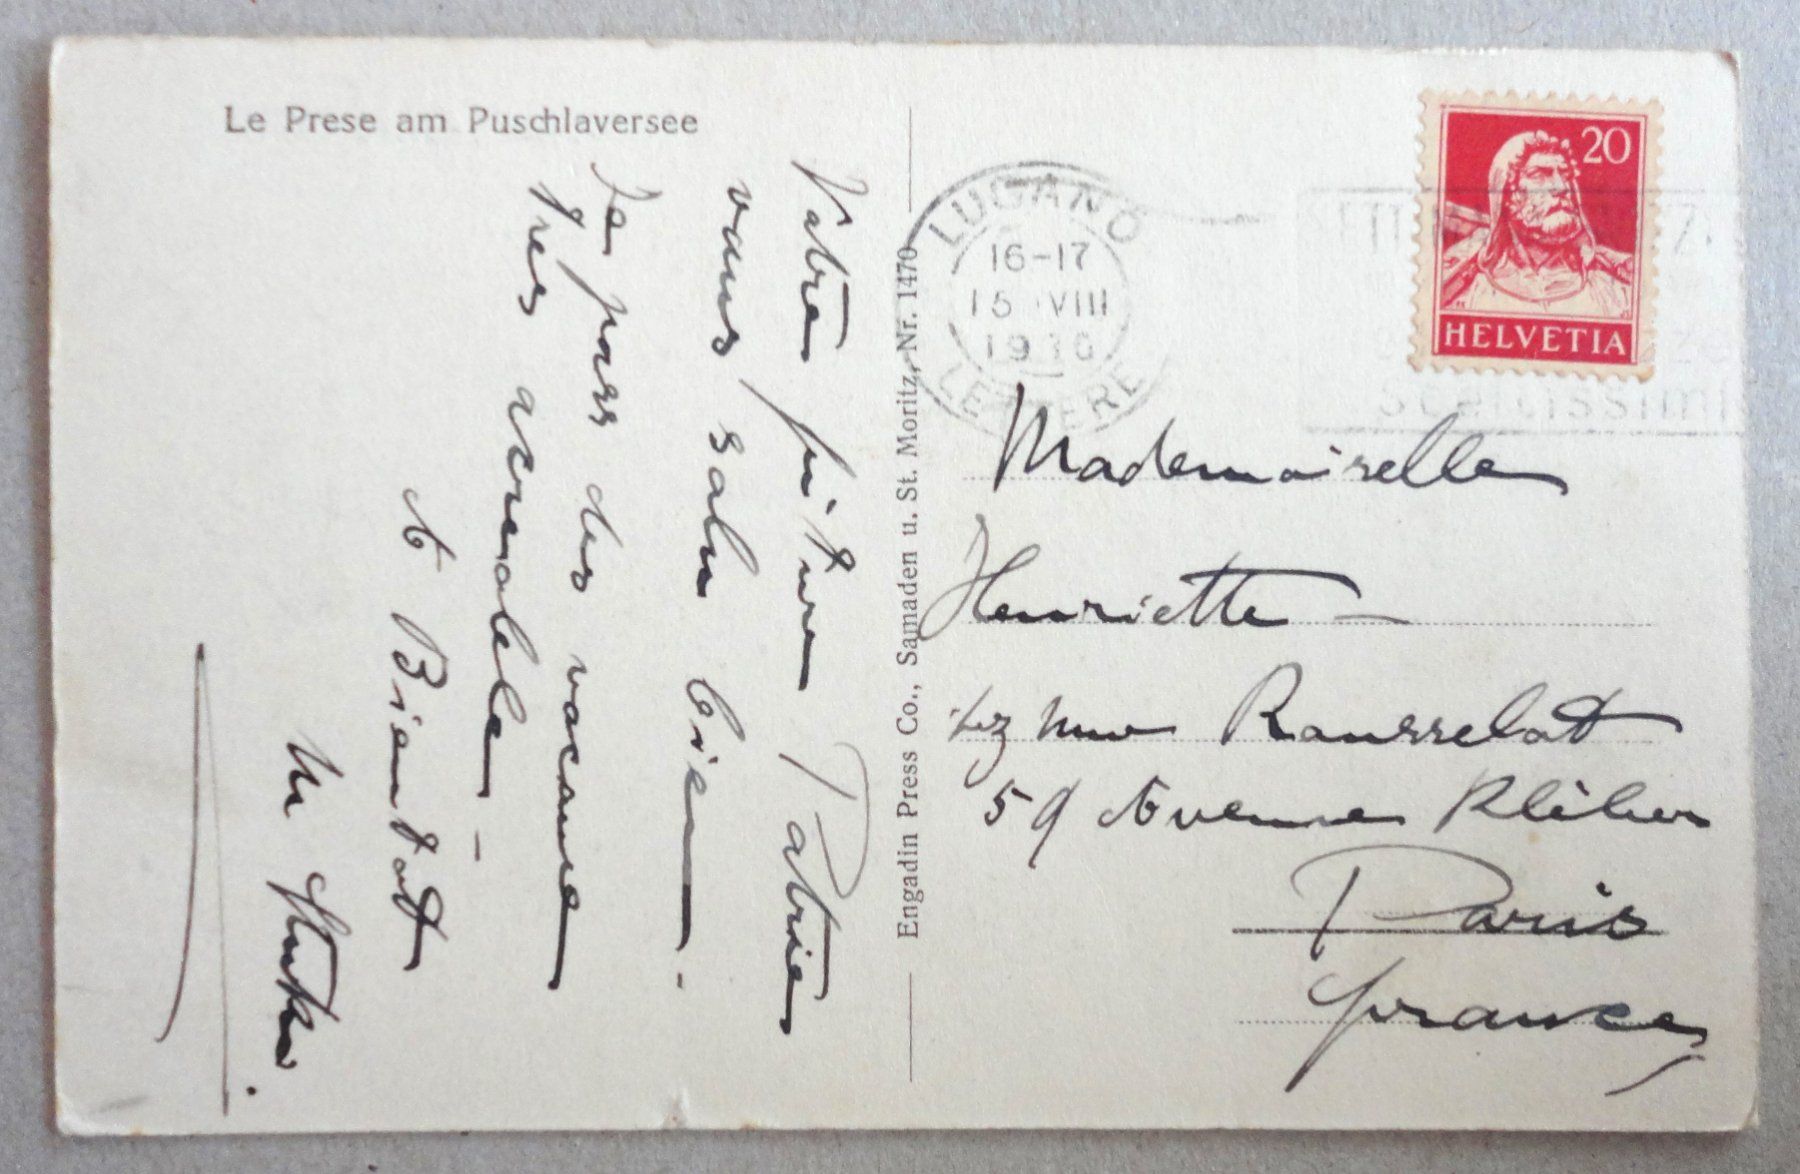 Le Prese am Puschlaversee
Votre future Patrie
vous salue bien.
Je pass des vacance
très agréable –
A Bientôt
Engadin Press Co., Samaden u. St. Moritz, Nr. 1470
LUGANO
16-17
15 VIII
1936
LETTERE
20
HELVETIA
Mademoiselle
Henriette –
Mme Rousselot
59 Avenue Kléber
Paris
France